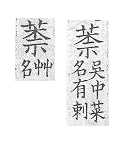 萘
吳中菜
名有刺
萘
艸
名